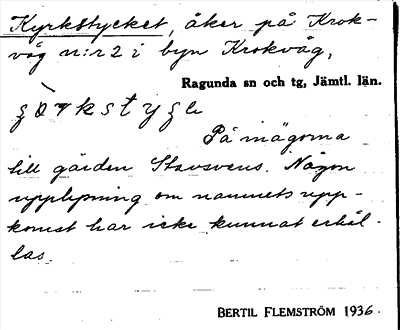 Kyrkstycket, åker på Krok-
våg n:r 2 i byn Krokvåg,
Ragunda sn och tg, Jämtl. län.
På mägorna
till gården Stavsvens. Någon
upplysning om namnets upp-
komst har icke kunnat erhål-
las.
BERTIL FLEMSTRÖM 1936.